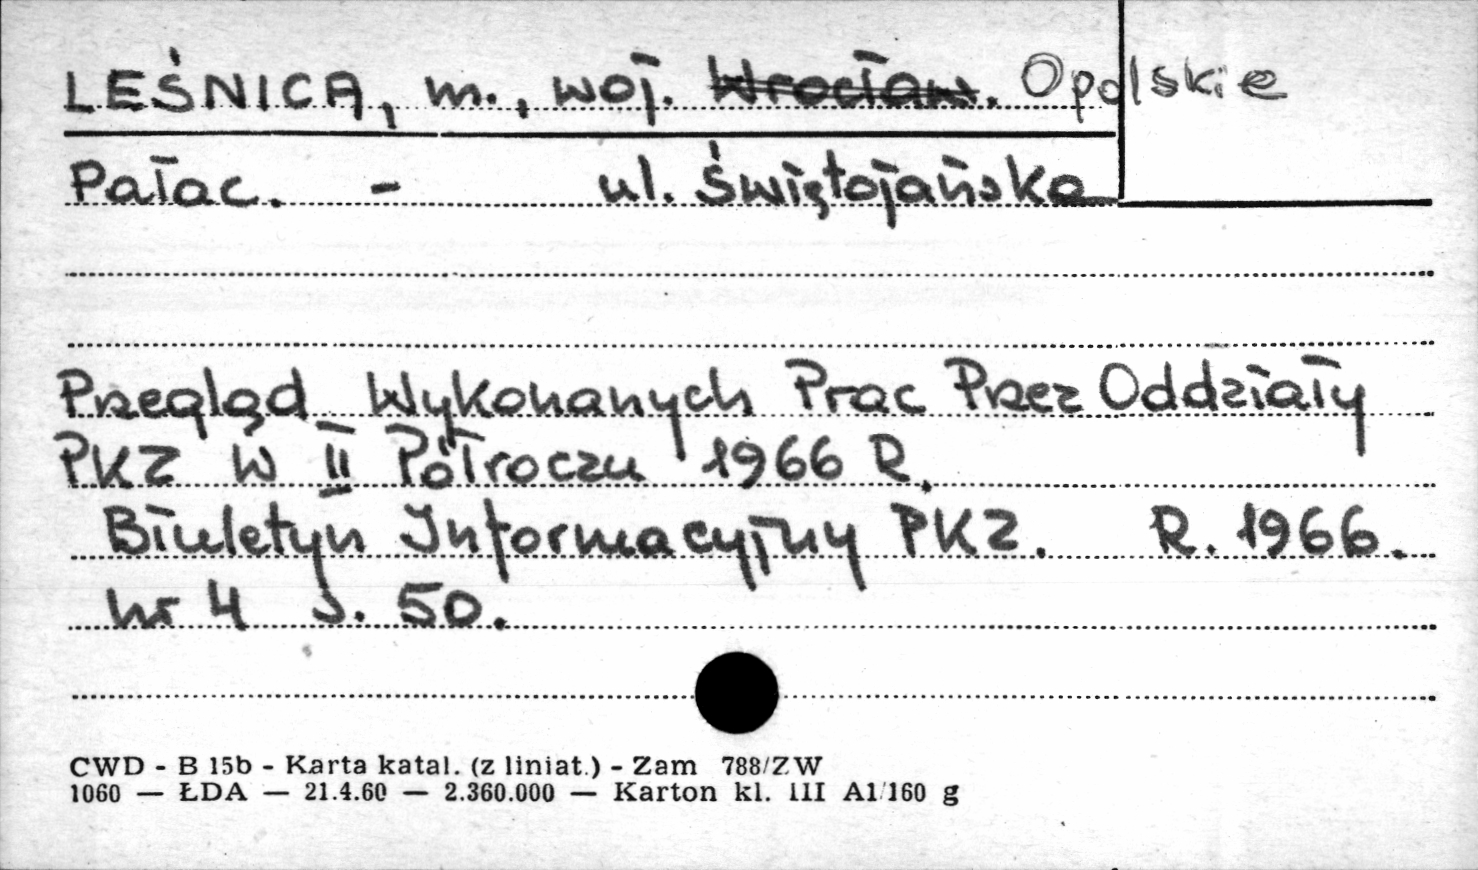 LEŚNICA, m., woj. Wrocław. Opolskie
Pałac. - ul. Świętojańska
Przegląd Wykonanych Prac Przez Oddziały
PKZ W II Półroczu 1966 R.
Biuletyn Informacyjny PKZ. R. 1966.
nr 4 S. 50.
CWD - B 15b - Karta katal. (z liniat.) - Zam 788/ZW
1060 — ŁDA — 21.4.60 — 2.360.000 — Karton kl. III A1/160 g